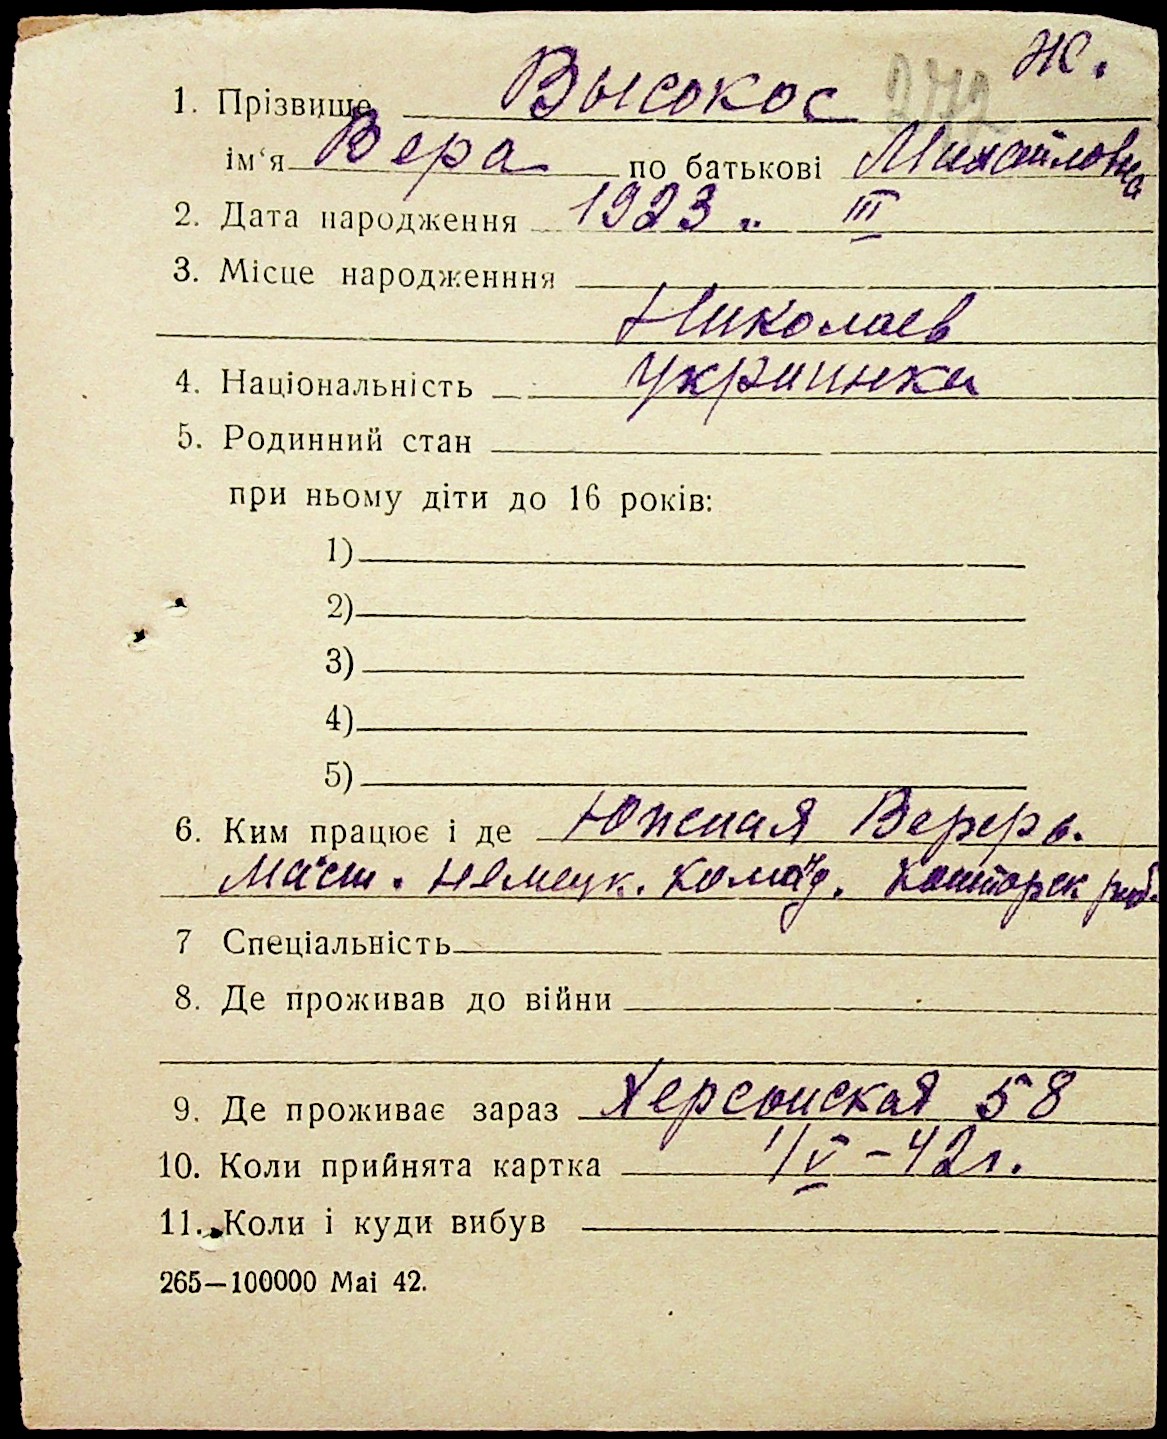 Ж.
1. Прізвище Высокос 272
ім'я Вера по батькові Михайловна
2. Дата народження 1923 .. III
3. Місце народженння
Николаев
4. Національність Укрпинка
5. Родинний стан
при ньому діти до 16 років:
1)
2)
3)
4)
5)
6. Ким працює і де Южная Верфь.
Маст. Немецк. команд. конторск раб.
7 Спеціальність
8. Де проживав до війни
9. Де проживає зараз Херсонская 58
10. Коли прийнята картка 1/V – 42г.
11. Коли і куди вибув
265—100000 Mai 42.